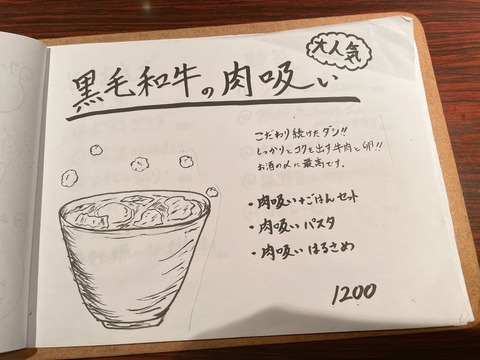 大人気
黒毛和牛の肉吸い
こだわり続けたダシ!!
しっかりとコクを出す牛肉と卵!!
お酒の〆に最高です。
・肉吸い+ごはんセット
・肉吸いパスタ
・肉吸いはるさめ
1200